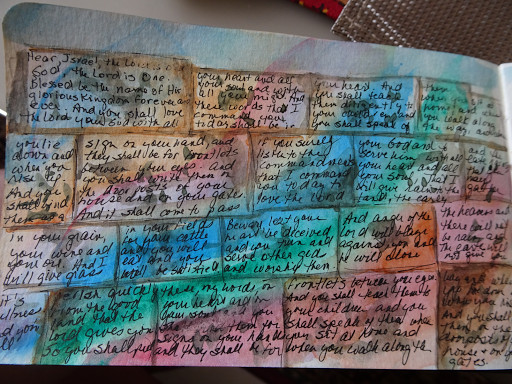 Hear, Israel, the Lord is
God, the Lord is One.
Blessed be the name of His
glorious Kingdom forever and
ever. And you shall love
the Lord your God with all
your heart and all
your soul and with
all your might. And
these words that I
command you
today shall be in
your heart. And
you shall teach
them diligently to
your children
you shall speak of
them
when you
you walk along
the way, and
you lie
down and
when you
rise. And
you shall bind
them as a
sign on your hand, and
they shall be for frontlets
between your eyes and
you shall write them on
the door posts of your
house and on your gates.
And it shall come to pass
if you surely
listen to the
commandments
that I command
you today to
love the Lord
your God and to
serve Him with all
your heart and all
your soul, that I
will give rain to the
land, the early
in your grain
your wine and
your oil And I
will give grass
in your fields
for your cattle
and you will
eat and you
will be satisfied
Beware, lest your
heart be deceived
and you turn and
serve other gods
and worship them
And anger of the
Lord will blaze
against you and
he will close
the heavens and
there will not
be rain and
the earth will
not give you
its
fullness
and you
will
perish quickly
from the good
land that the
Lord gives you
So you shall put
these, my words on
your heart and on
your soul and
them for
signs on your hand
and they shall be for
frontlets between your eyes.
And you shall teach them to
your children, and you
shall speak of them when
you sit at home and
when you walk along the
house and on your
gates.